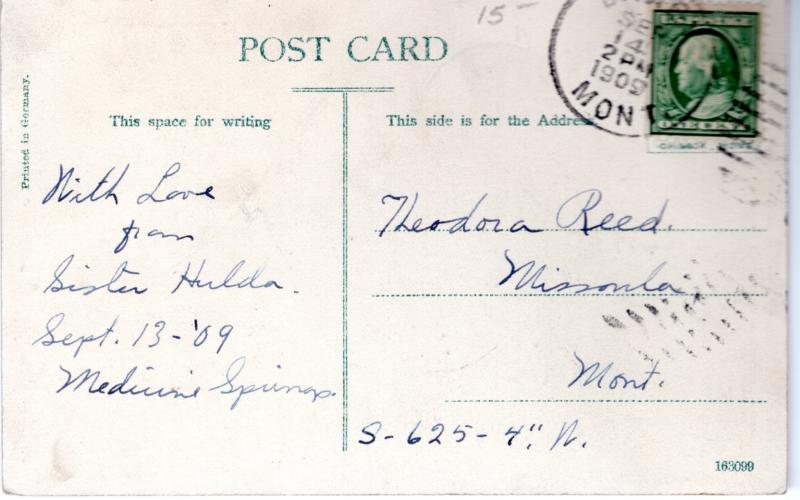 15-
SE
14
2 PM
1909
MONT
POST CARD
Printed in Germany.
This space for writing
This side is for the Address.
With Love
from
Sister Hulda.
Sept. 13-'09
Medicine Springs.
Theodora Reed.
Missoula
Mont.
S-625-4" N.
ONE CENT
163099